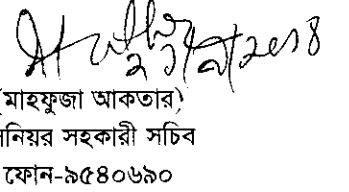 (মাহফুজা আকতার)
নিয়র সহকারী সচিব
ফোন-৯৫৪০৬৯০